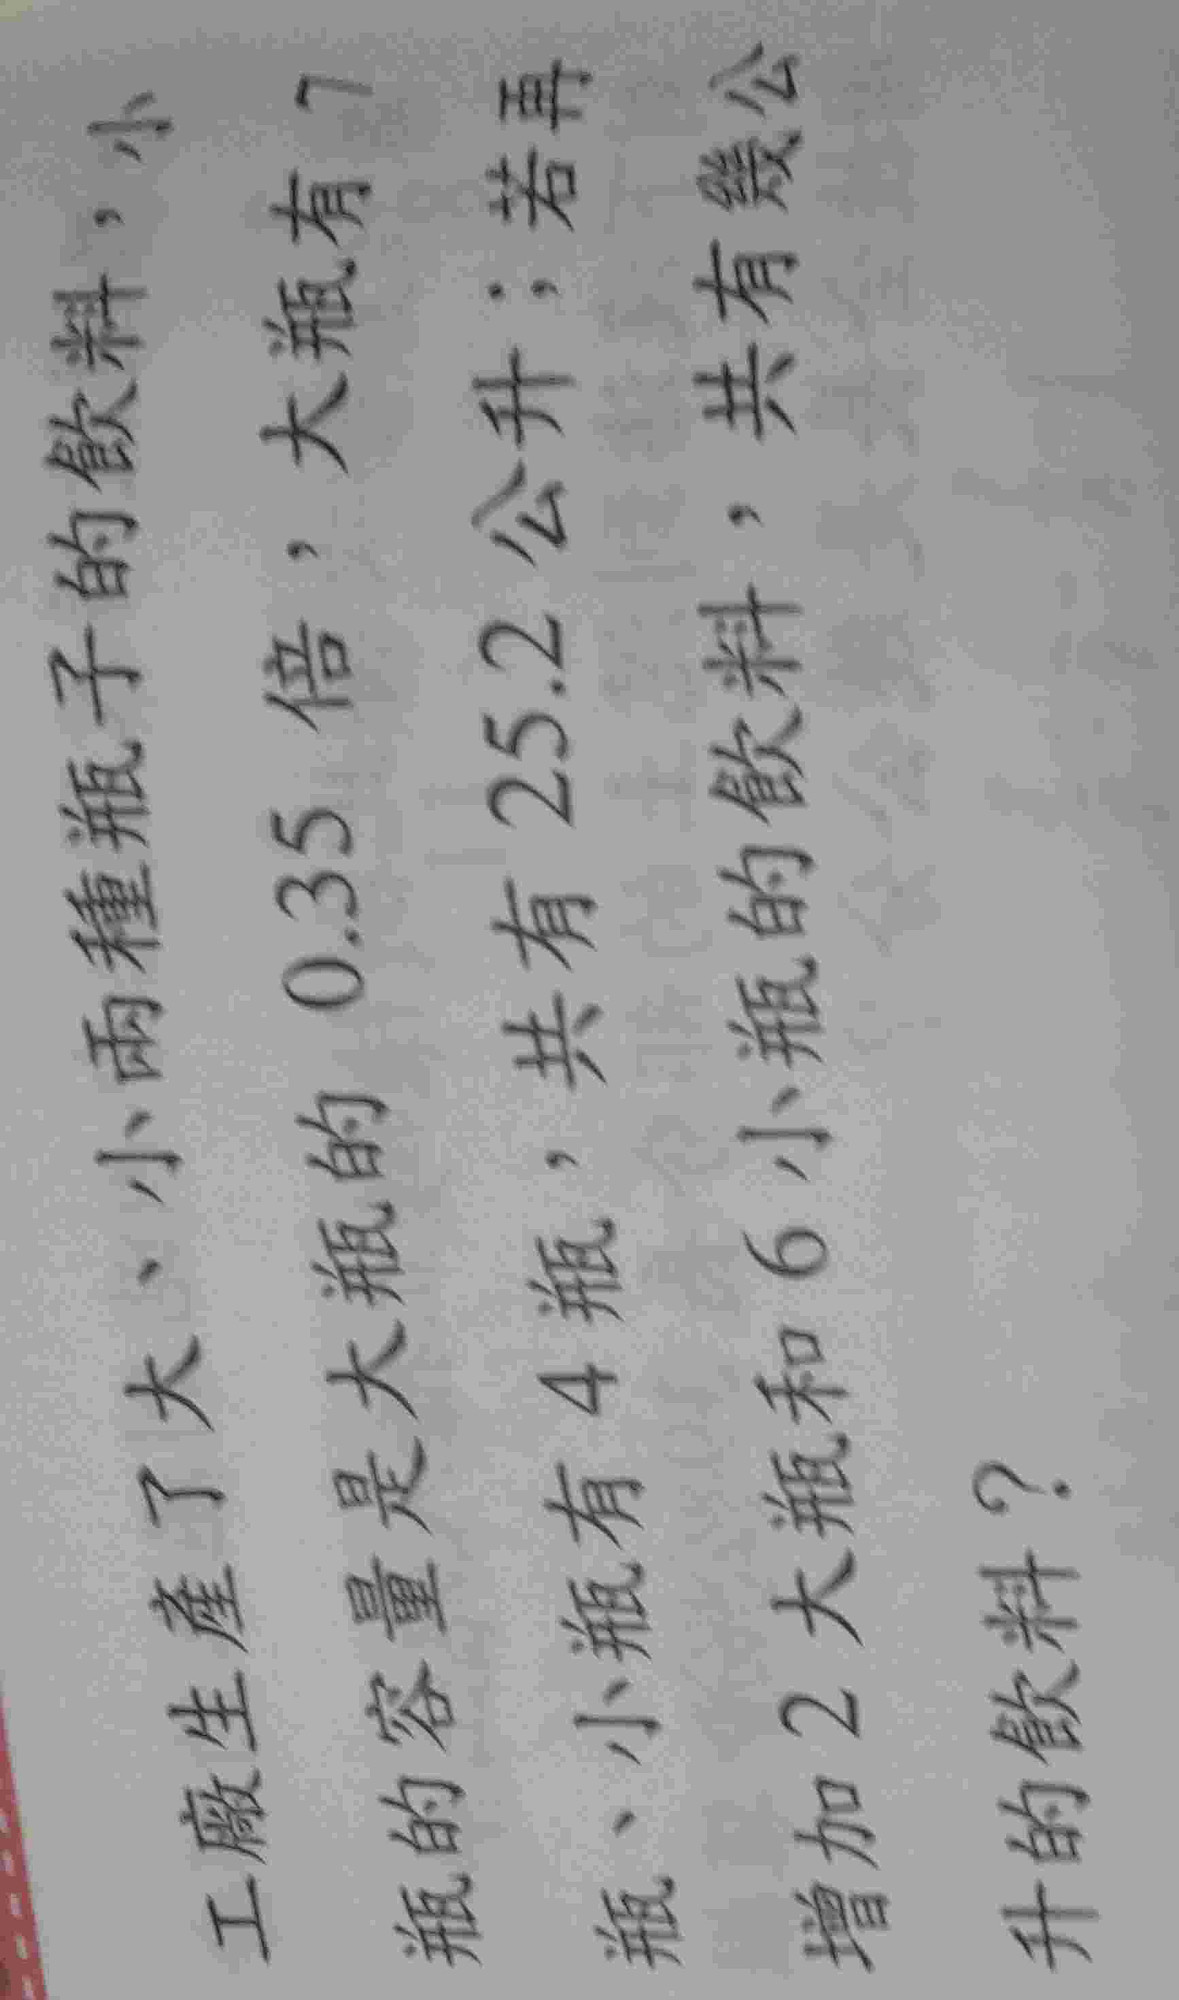 工廠生產了大、小兩種瓶子的飲料，小
瓶的容量是大瓶的 0.35 倍，大瓶有 7
瓶、小瓶有 4 瓶，共有 25.2 公升；若再
增加 2 大瓶和 6 小瓶的飲料，共有幾公
升的飲料？